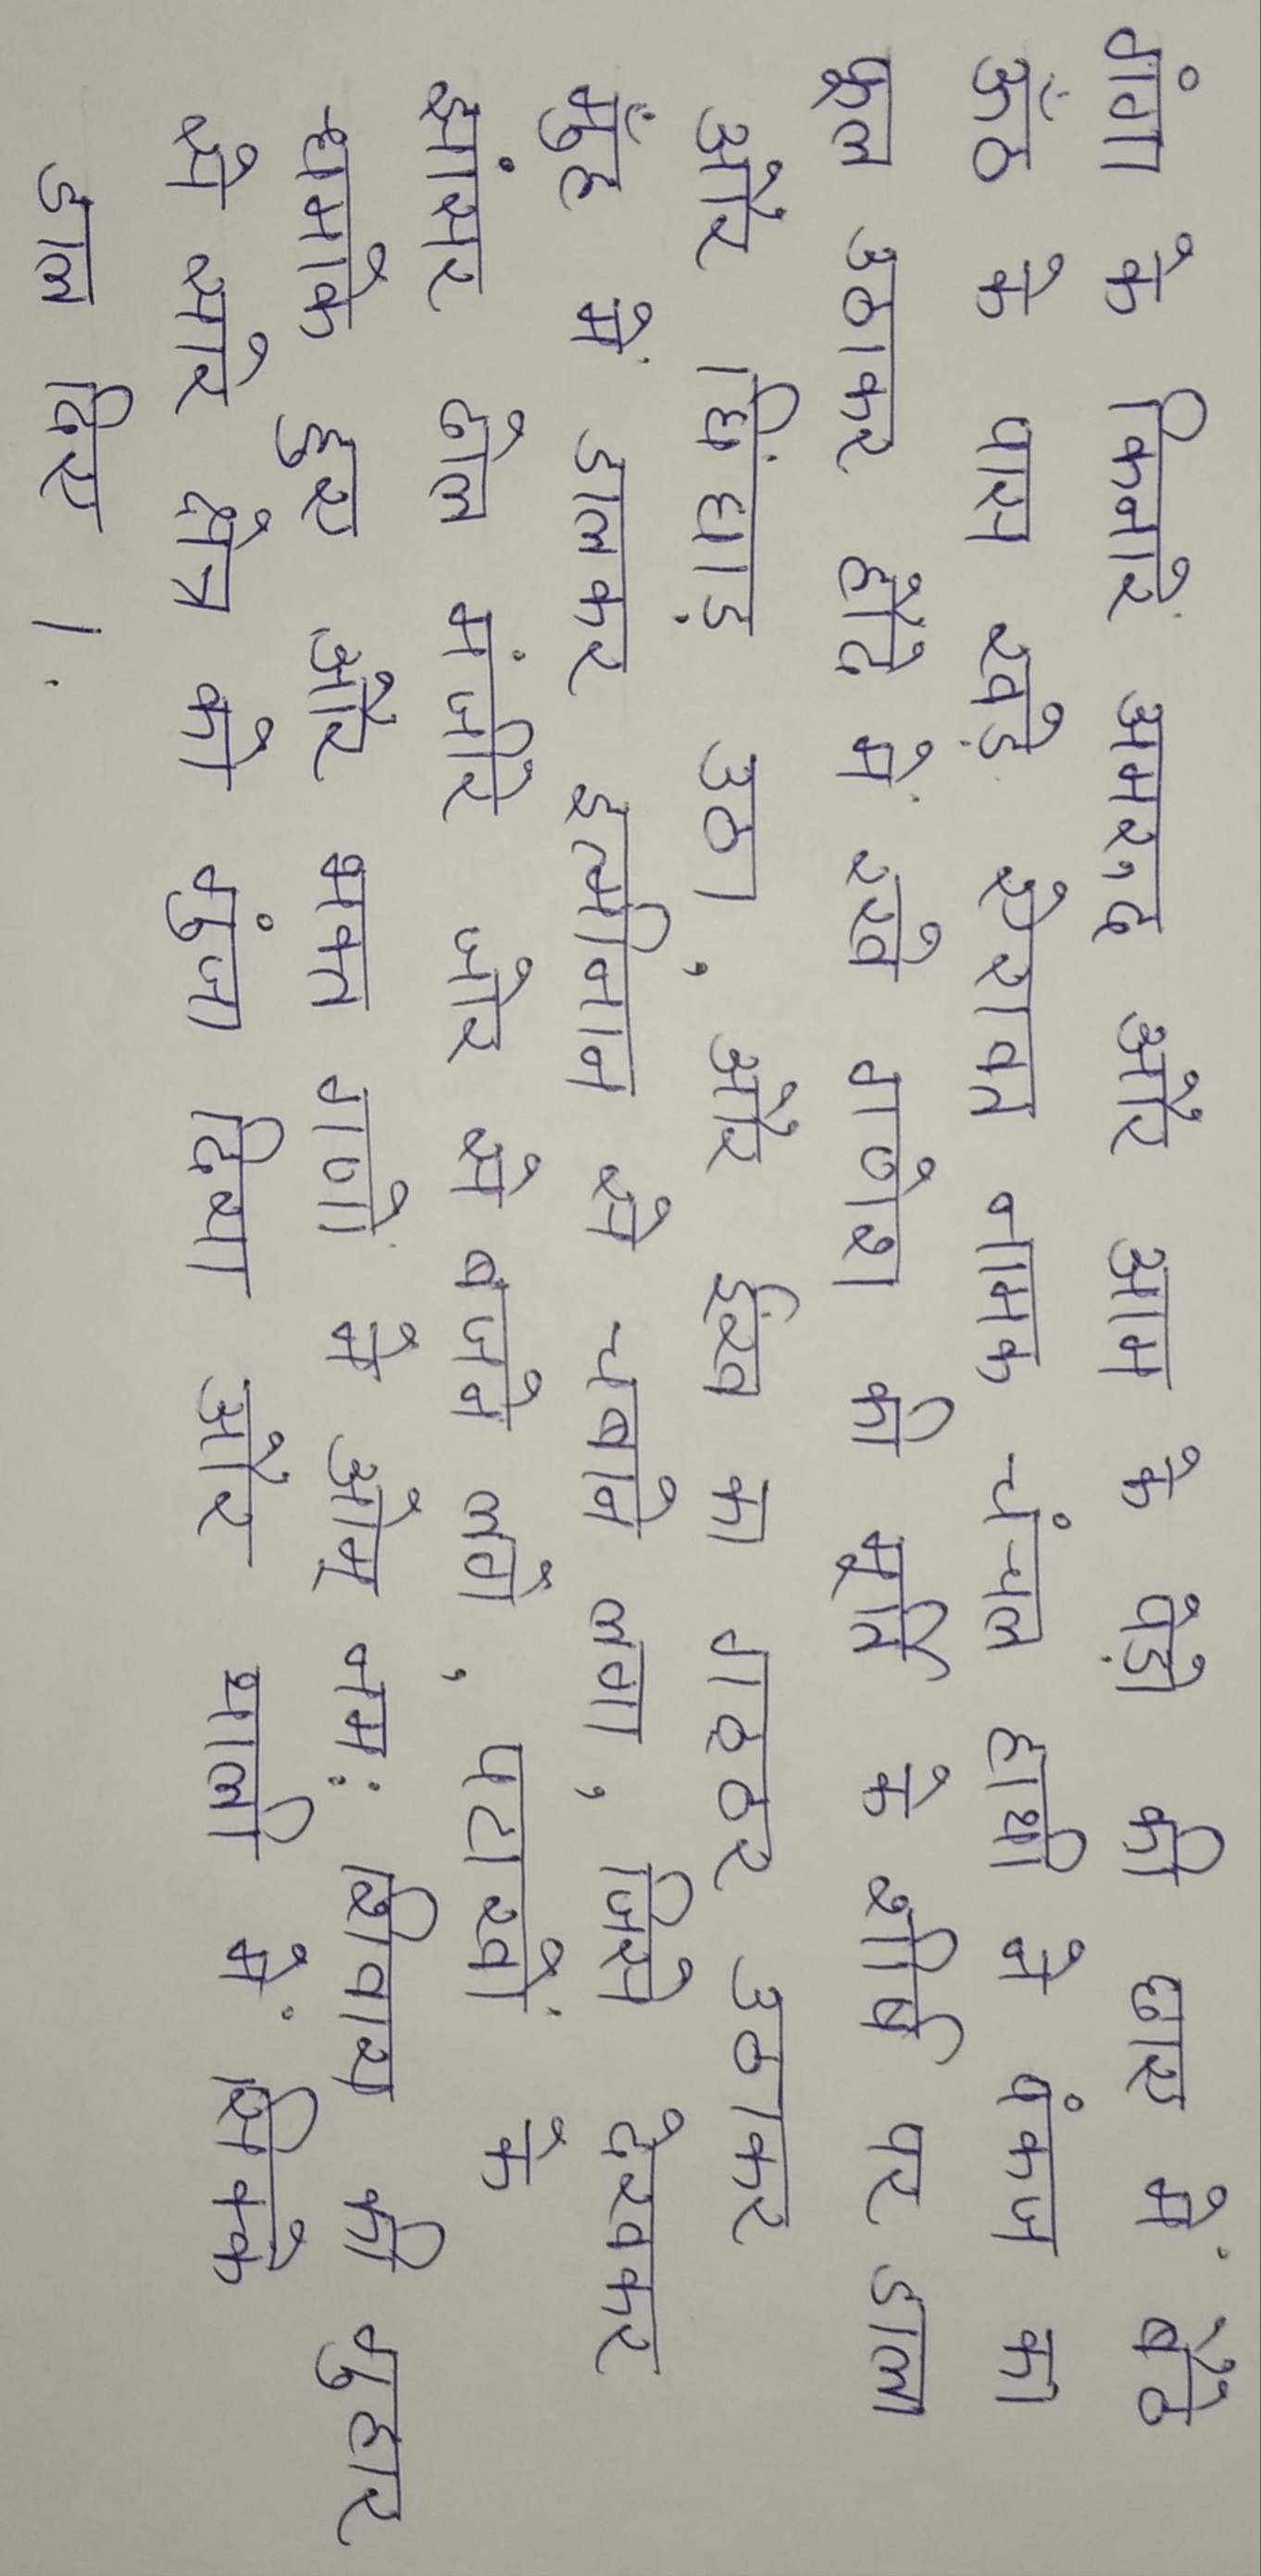 गंगा के किनारें अमरुद और आम के पेड़ो की छाए में बैठे
ऊँठ के पास खड़े ऐरावत नामक चंचल हाथी ने पंकज का
फूल उठाकर हौदे में रखे गणेश की मूर्ति के शीर्ष पर डाला
और घिंघाड़ उठा, और ईख का गठ्ठर उठाकर
मुँह में डालकर इत्मीनान से चबाने लगा, जिसे देखकर
झांसर ढोल मंजीरे जोर से बजने लगे, पटाखों के
धमाके हुए और भक्त गणों ने ओम् नम: शिवाय की गुहार
से सारे क्षेत्र को गुंजा दिया और थाली में सिक्के
डाल दिए ।.